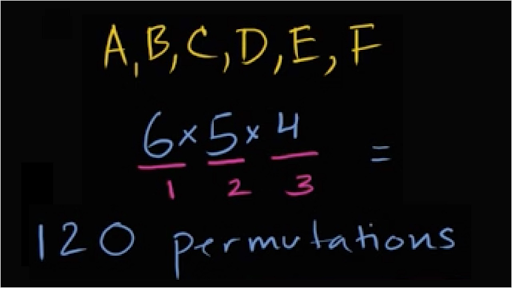 A, B, C, D, E, F
6 × 5 × 4 =
1 2 3
120 permutations